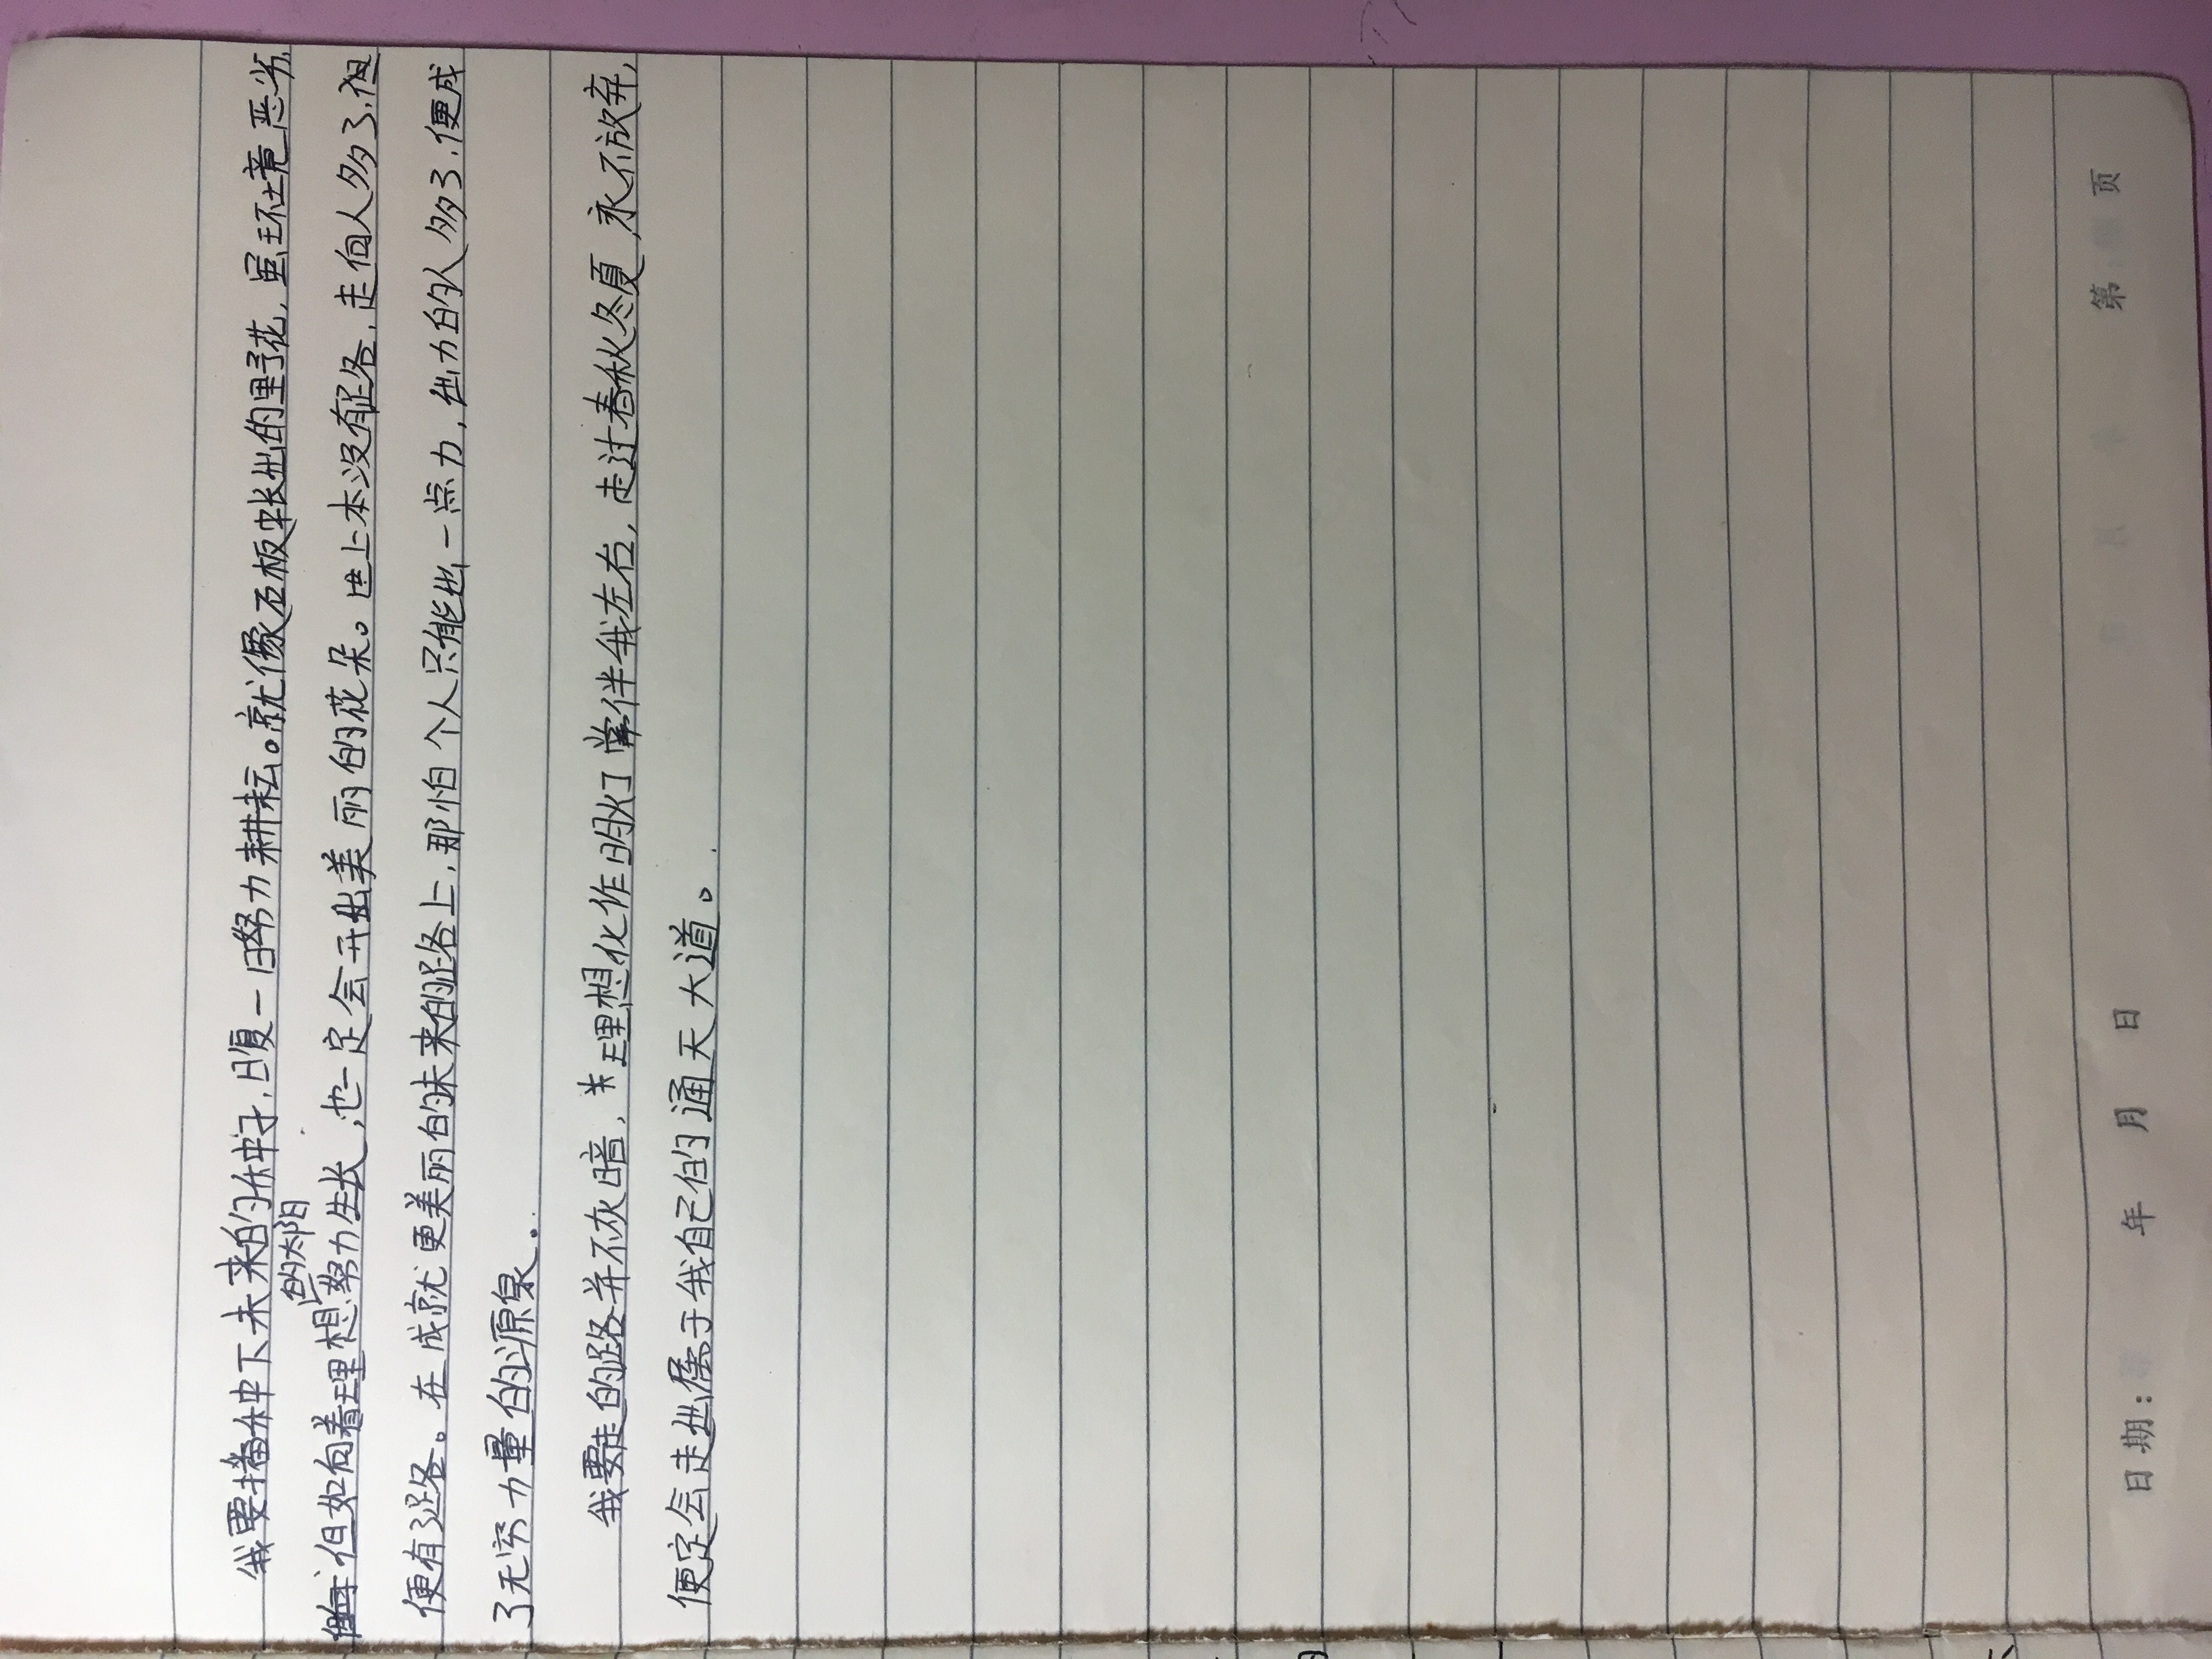 我要播种下未来的种子,日复一日努力耕耘。就像石板中长出的野花,虽环境恶劣,
但如向着理想的太阳努力生长,也一定会开出美丽的花朵。世上本没有路,走向人多了,
便有了路。在成就更美丽的未来的路上,那怕个人只能出一点力,出力的人多了,便成
了无穷力量的源泉.
我要走的路并不灰暗,理想化作明灯常伴我左右,走过春秋冬夏,永不放弃,
便定会走出属于我自己的通天大道。
日期: 年 月 日 第 页